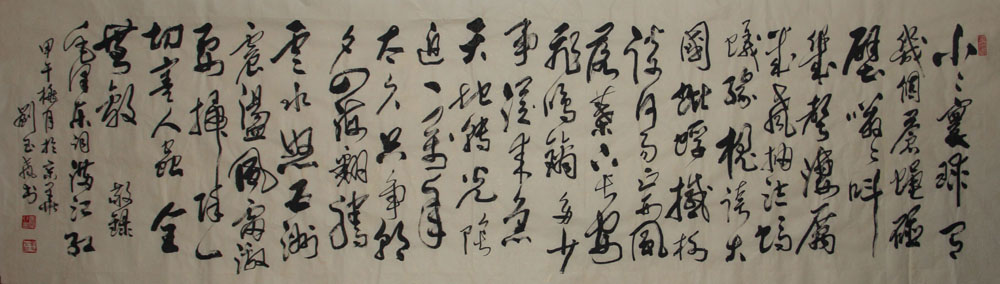 小々寰球有
幾個蒼蠅碰
壁嗡々叫
幾聲凄厲
幾聲抽泣螞
蟻緣槐誇大
國蚍蜉撼樹
談何易正西風
落葉下長安
飛鳴鏑多少
事從來急
天地轉光陰
迫一萬年
太久只爭朝
夕四海翻騰
雲水怒五洲
震盪風雷激
要掃除一
切害人蟲全
無敵 敬錄
毛澤東詞滿江紅
甲午梅月於京華
劉玉書